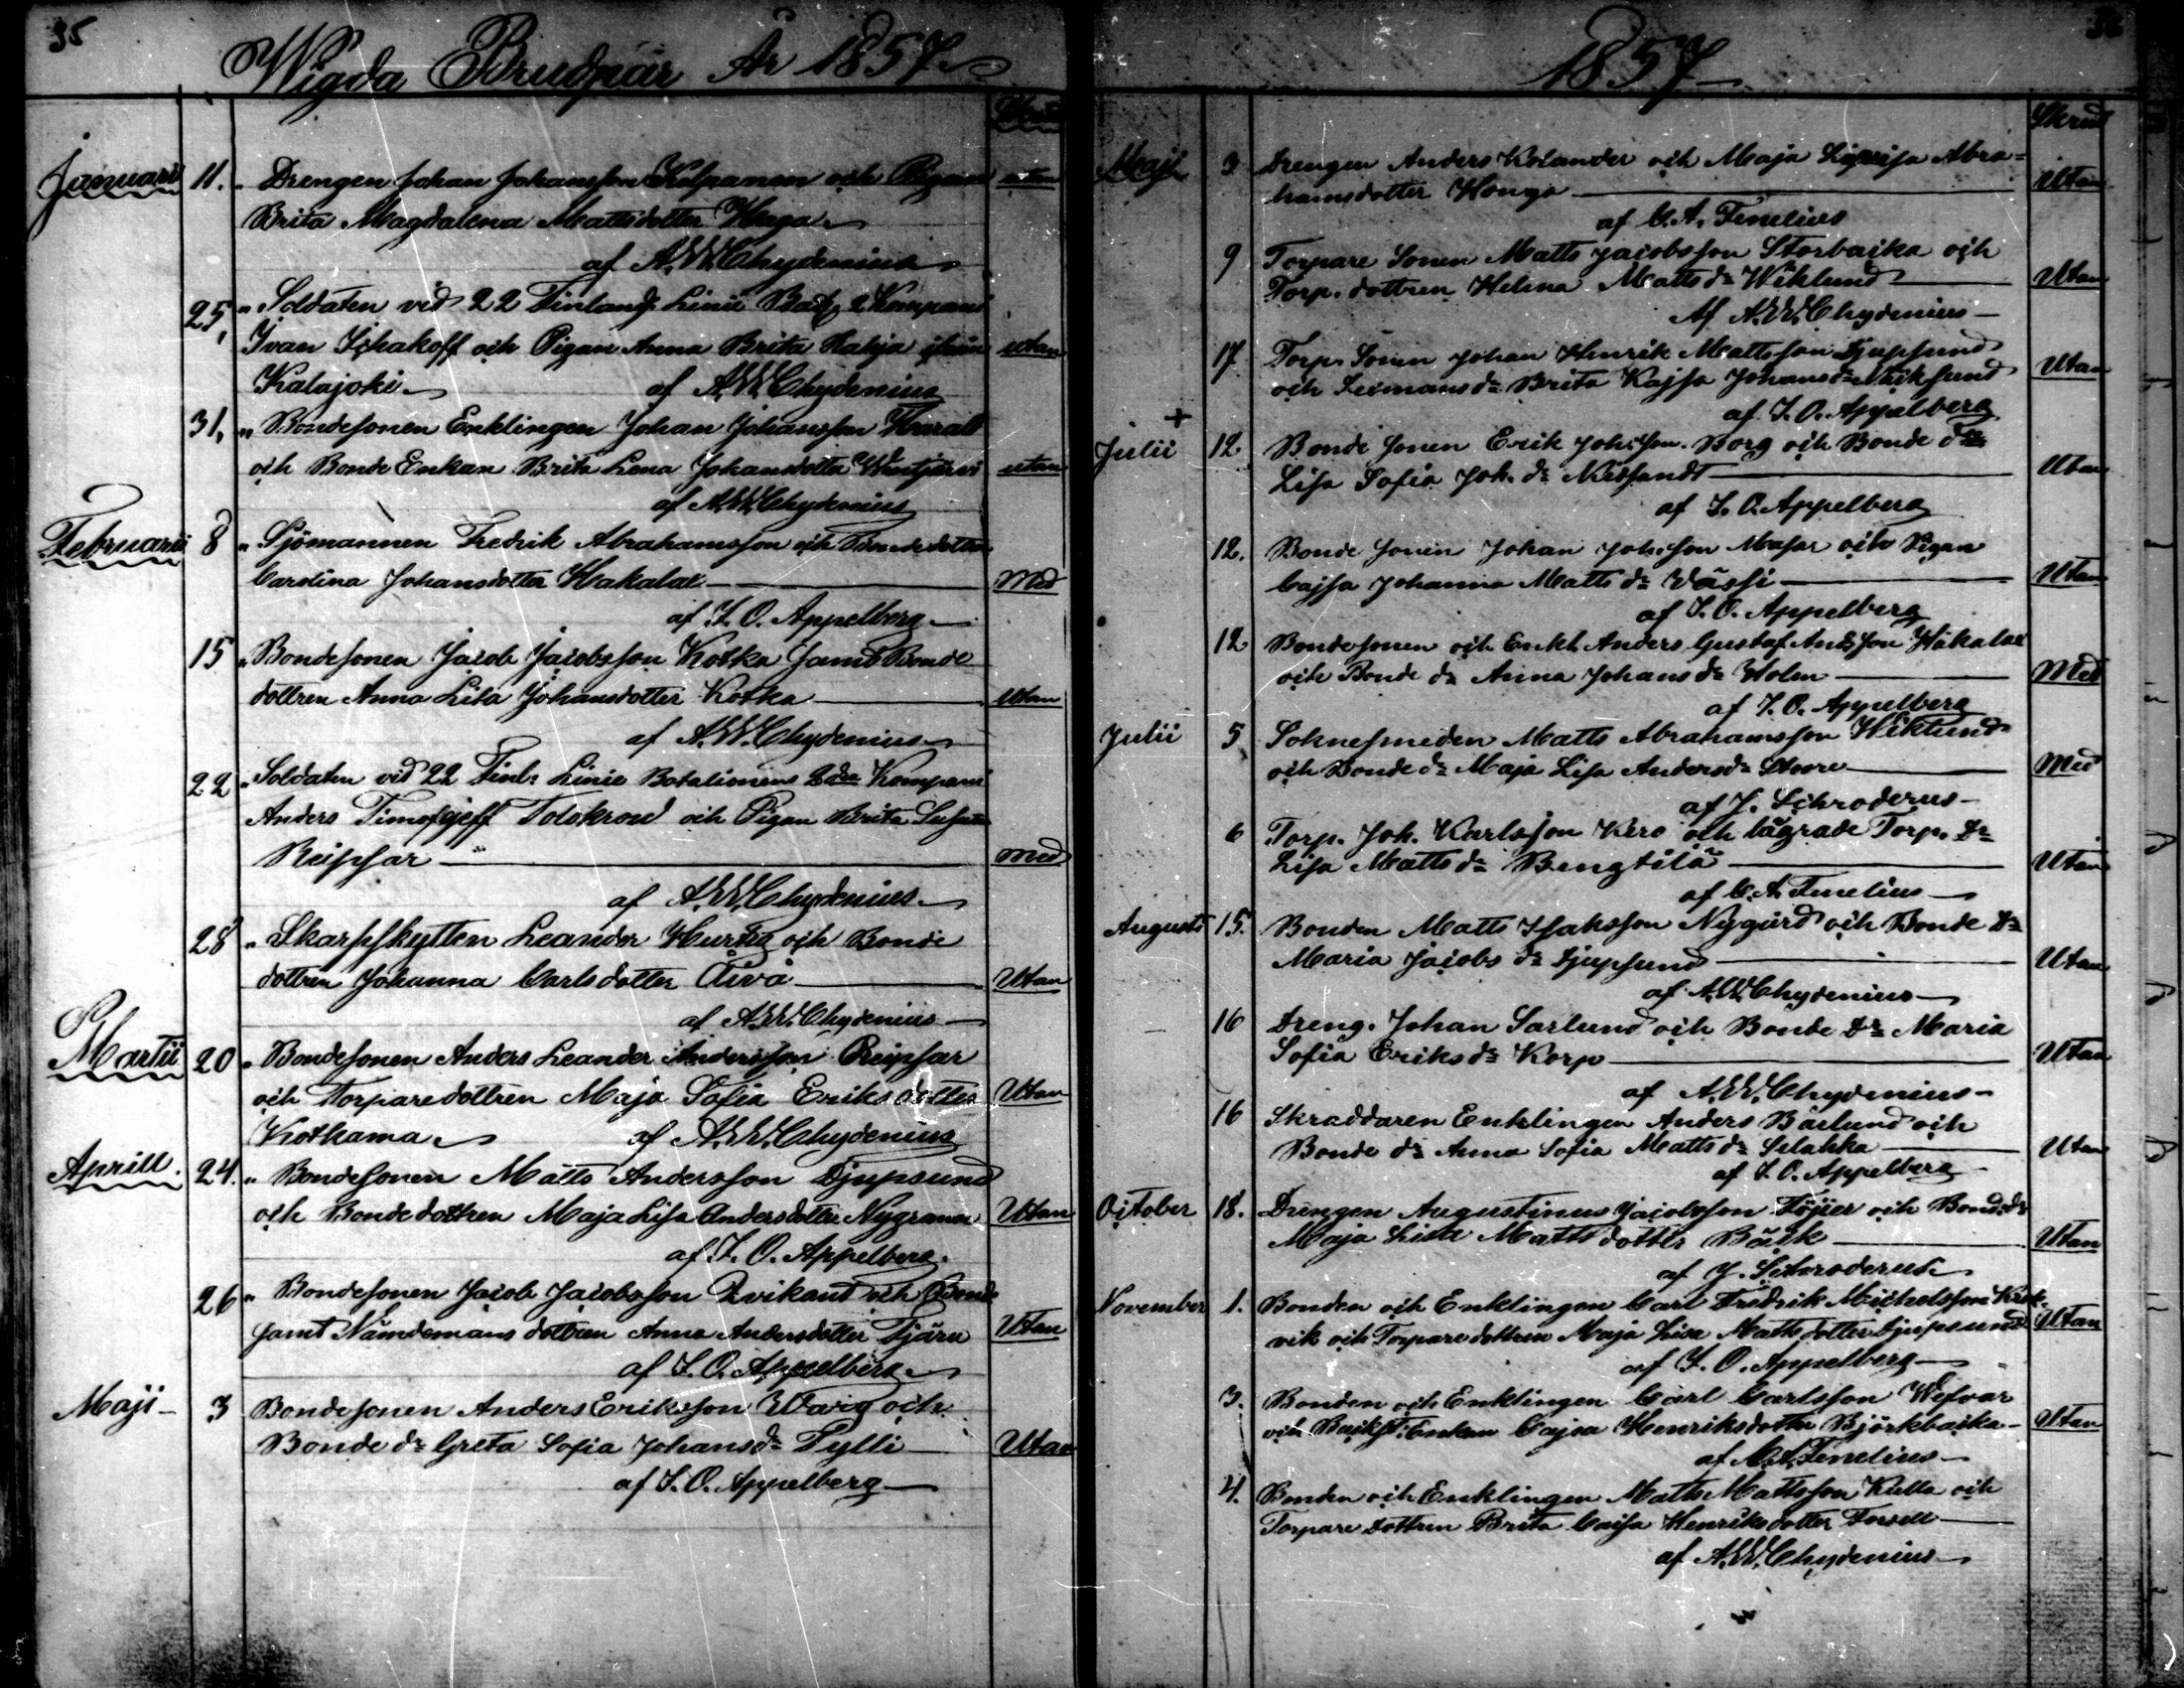 35
Wigda Brudpar År 1857
Januarii 11. Drengen Johan Johansson och Pigan utan
Brita Magdalena Mattsdotter Honga
af A. W. Chydenius
25, Soldaten vid 22 Finlands Linie Bat. 2 Kompani
Ivan Ischakoff och Pigan Anna Brita Rahja ifrån utan
Kalajoki af A. W. Chydenius
31, Bondesonen Enklingen Johan Johansson
och Bonde Enkan Brita Lena Johansdotter utan
af A. W. Chydenius
Februarii 8 Sjömannen Fredrik Abrahamsson och Bondedottren
Carolina Johansdotter Hakalax Med
af J. O. Appelberg
15 Bondesonen Jacob Jacobsson Kotka samt Bonde
dottren Anna Lisa Johansdotter Kotka Utan
af A. W. Chydenius
22 Soldaten vid 22 Finl: Linie Batalionens 2dra Kompani
Anders Timofejeff och Pigan Brita Susanna
Reipsar Med
af A. W. Chydenius
28 Skarpskytten Leander Hurtig och Bonde
dottren Johanna Carlsdotter Åivå Utan
af A. W. Chydenius
Martii 20 Bondesonen Anders Leander Andersson Reipsar
och Torparedottren Maja Sofia Eriksdotter Utan
Kotkama af A. W. Chydenius
Aprill 24. Bondesonen Matts Andersson Djupsund
och Bondedottren Maja Lisa Andersdotter Nygrann Utan
af J. O. Appelberg
26 Bondesonen Jacob Jacobsson Qvikant och Bonde
samt Nämdemans dottren Anna Andersdotter Tjäru Utan
af J. O. Appelberg
Maji 3 Bondesonen Anders Eriksson Warg och
Bonde dr Greta Sofia Johansdr Pylli Utan
af J. O. Appelberg
36
1857
Skrud
Maji 3 Drengen Anders Kolander och Maja Lovisa Abra=
hamsdotter Honga Utan
af C. A. Fenelius
9 Torpare Sonen Matts Jacobsson Storbacka och
Torp. dottren Helena Matts dr Wiklund Utan
Af A. W. Chydenius
17 Torp. Sonen Johan Henrik Mattsson Djupsund
och dr Brita Kajsa Johans dr Utan
af J. O. Appelberg
Julii 12 Bonde sonen Erik Joh:son Borg och Bonde dr
Lisa Sofia Joh. dr Utan
af J. O. Appelberg
12. Bonde sonen Johan Joh:son och Pigan
Cajsa Johanna Matts dr Wässi Utan
af J. O. Appelberg
12 Bondesonen och Enkl. Anders Gustaf And:son Hakalax
och Bonde dr Anna Johans dr Holm Med
af J. O. Appelberg
Julii 5 Soknesmeden Matts Abrahamsson Wiklund
och Bonde dr Maja Lisa Anders dr Storre Med
af J. Schroderus
6 Torp. Joh. Karlsson Kero och lägrade Torp. Dr
Lisa Matts dr Bengtilä Utan
af C. A. Fenelius
Augusti 15. Bonden Matts Isaksson Nygård och Bonde Dr
Maria Jacobs dr Djupsund Utan
af A. W. Chydenius
16 Dreng. Johan Sarlund och Bonde Dr Maria
Sofia Eriks dr Korp Utan
af A. W. Chydenius
16 Skraddaren Enklingen Anders Bärlund och
Bonde dr Anna Sofia Matts dr Selahka Utan
af J. O. Appelberg
October 18. Drengen Augustinus Jacobsson Töjer och Bond. dr
Maja Lisa Mattsdotter Bäck Utan
af J. Schroderus
November 1. Bonden och Enklingen Carl Fredrik Michelsson Krok-
vik och Torparedottren Maja Lisa Mattsdotter Djupsund Utan
af J. O. Appelberg
3. Bonden och Enklingen Carl Carlsson Wefvar
och Enkan Cajsa Henriksdotter Björkbacka Utan
af C. A. Fenelius
4. Bonden och Enklingen Matts Mattsson Kulla och
Torpare dottren Brita Caisa Henriksdotter Forsell
af A. W. Chydenius